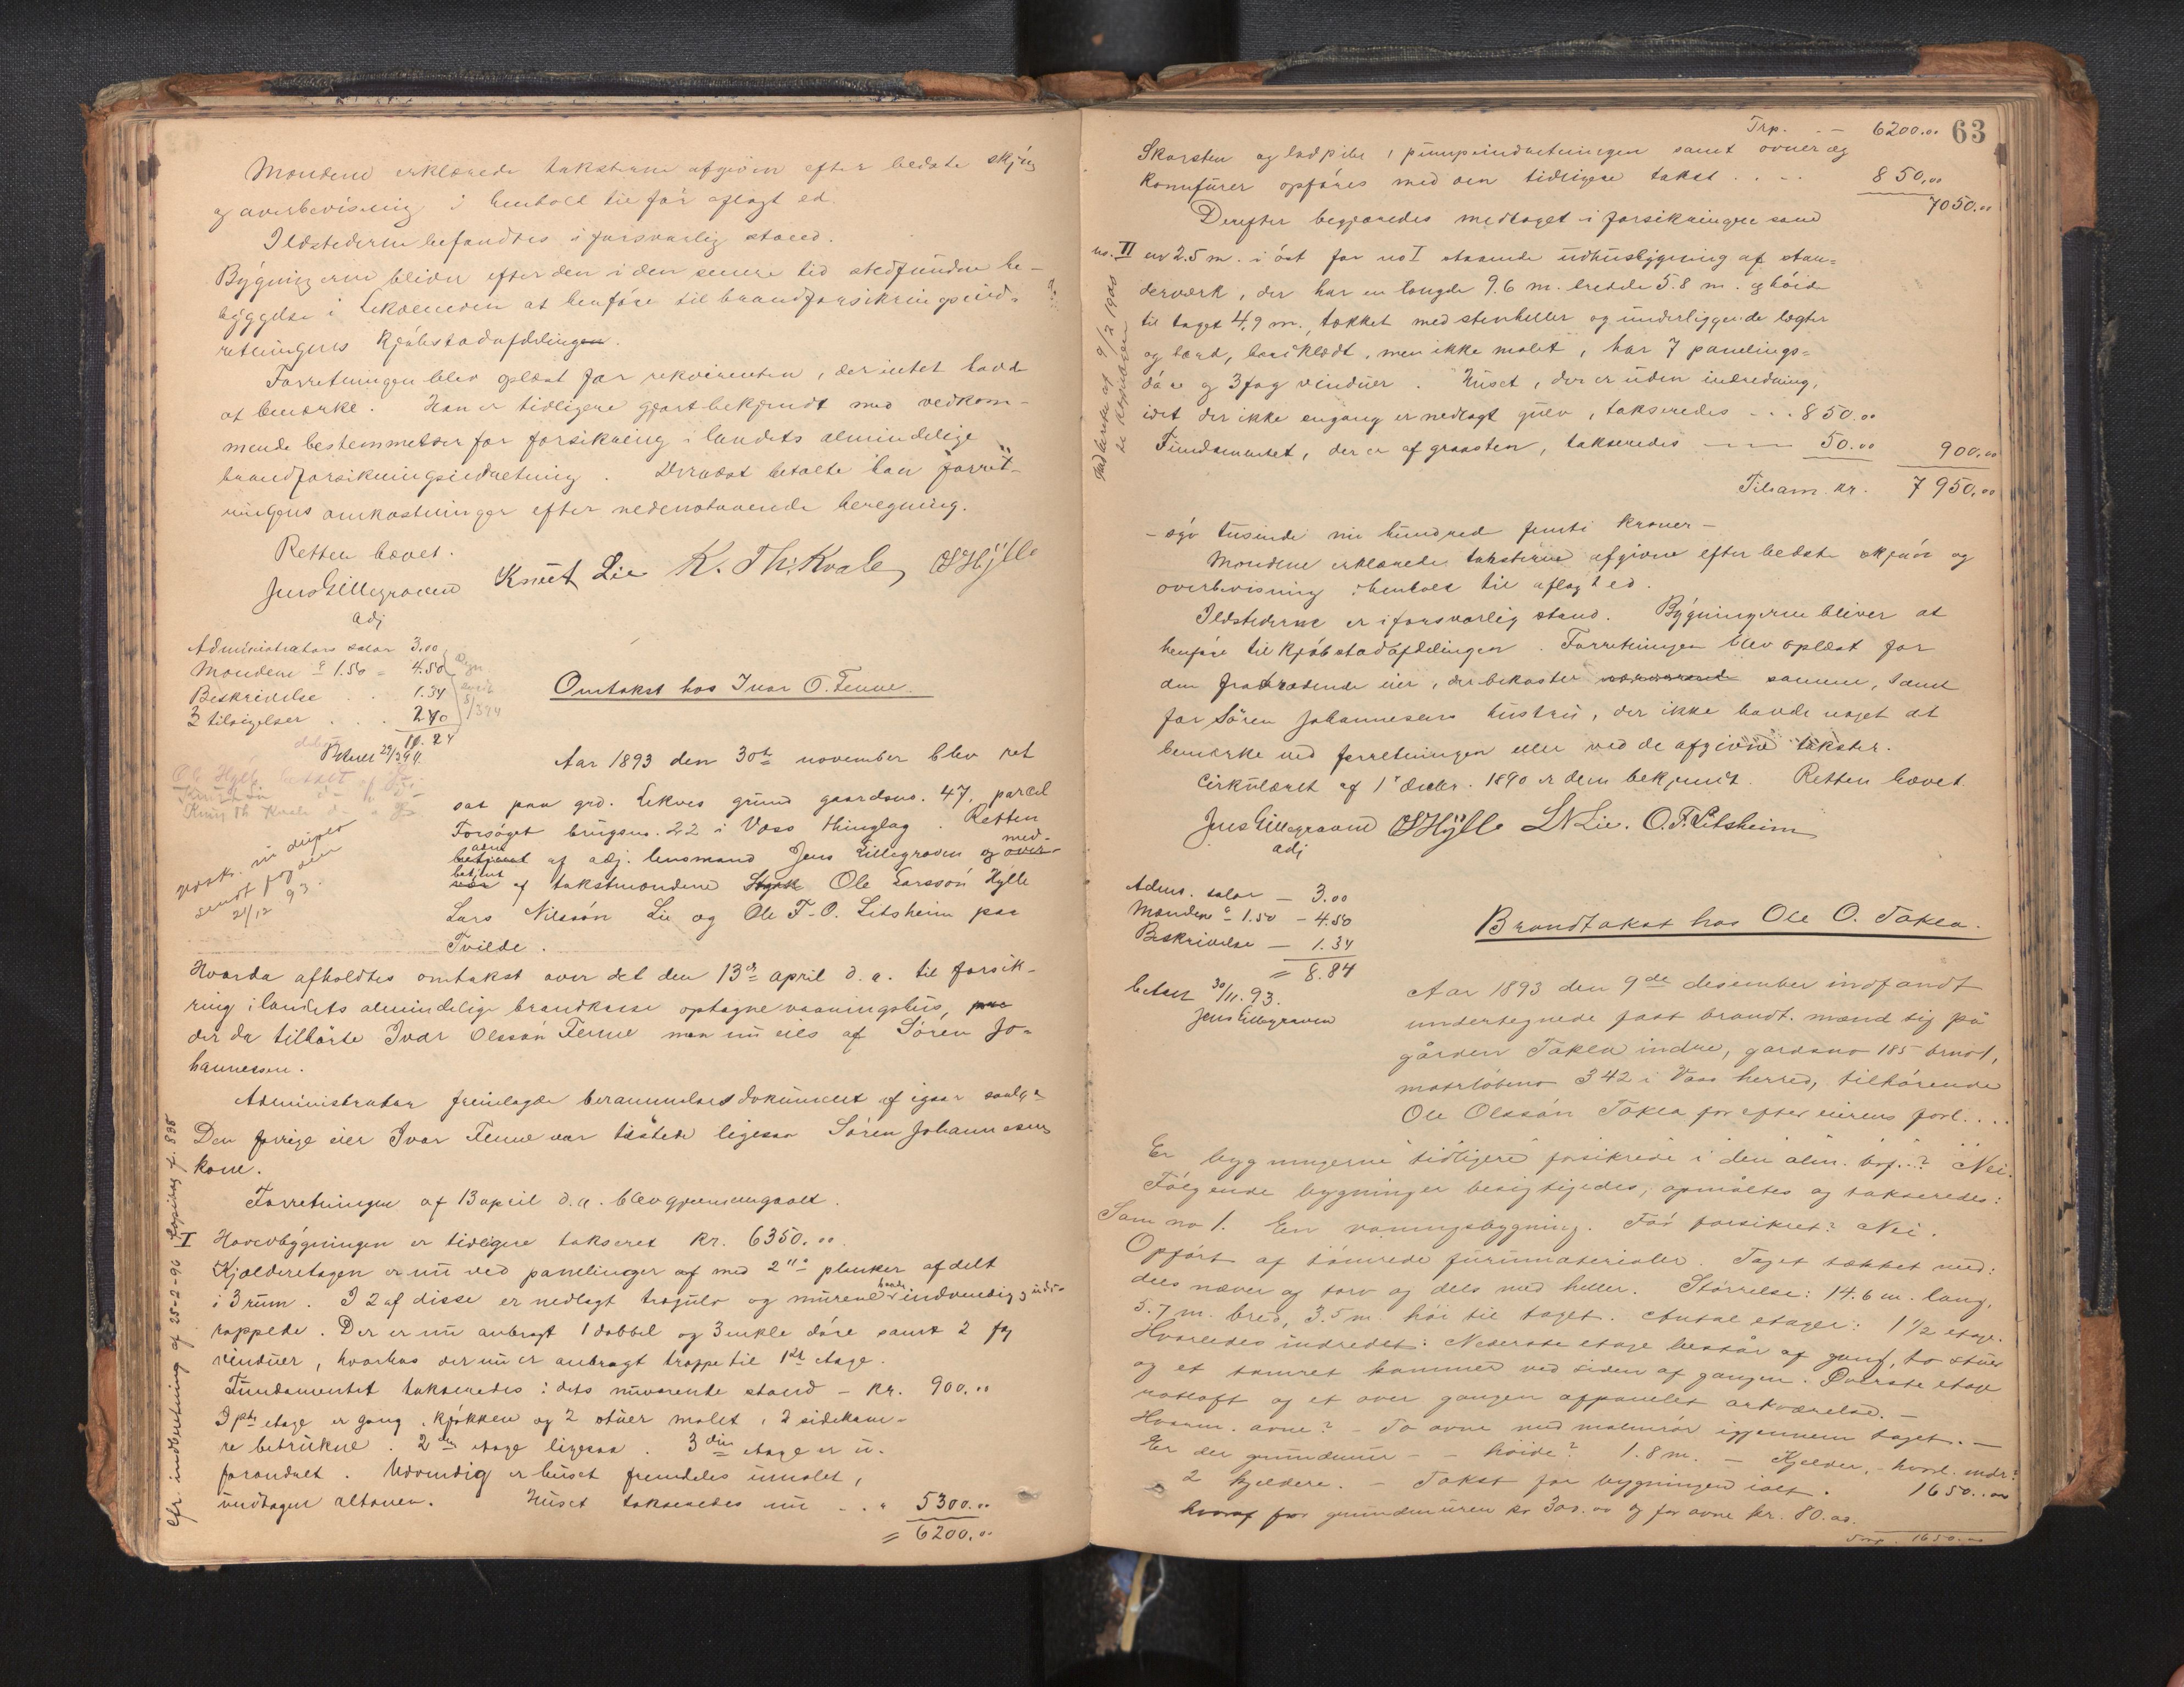 Mændene erklærede taksterne afgivne efter bedste skjøn
og overbevisning i henhold til før aflagt ed.
Ildstederne befandtes i forsvarlig stand.
Bygningerne bliver efter den i den senere tid stedfundne be-
byggelse i Lekvemoen at henføre til brandforsikringsind-
retningens Kjøbstadafdelingen.
Forretningen blev oplæst for rekvirenten, der intet havde
at bemærke. Han er tidligere gjort bekjendt med vedkom-
mende bestemmelser for forsikring i landets almindelige
brandforsikringsindretning. Dernæst betalte han forret-
ningens omkostninger efter nedenstaaende beregning.
Retten hævet.
Jens Gillegraven Knut Lie K. Th. Kvale OHylle
adj
Administrators salær 3.00
Mændene à 1.50 = 4.50
Beskrivelse . . 1.34
3 tilsigelser . . . 2.40
Omtakst hos Ivar O. Fenne.
Aar 1893 den 30te november blev ret
sat paa grd. Lekves grund gaardsno. 47, parcel
Forsøget brugsno. 22 i Voss thinglag. Retten
adm. med-
betjent af adj. lensmand Jens Gillegraven og over-
betjent
af takstmændene Ole Larssøn Hylle
Lars Nilssøn Lie og Ole T. O. Litsheim paa
Tvilde.
sendt fogden
21/12 93.
Hvorda afholdtes omtakst over det den 13de april d. a. til forsik-
ring i landets almindelige brandkasse optagne vaaningshus, paa
der da tilhørte Ivar Olssøn Fenne men nu eies af Søren Jo-
hannessen.
Administrator fremlagde berammelsesdokument af igaar saalyd.
Den forrige eier Ivar Fenne var tilstede ligesaa Søren Johannesens
kone.
Forretningen af 13 april d. a. blev gjennemgaaet.
I Hovedbygningen er tidligere takseret Kr. 6350.00
Kjælderetagen er nu ved panelinger af med 2"s planker afdelt
i 3 rum. I 2 af disse er nedlagt trægulv og murene baade indvendig og udv.
rappede. Der er nu anbragt 1 dobbel og 3 enkle døre samt 2 fag
vinduer, hvorhos der nu er anbragt trappe til 1ste etage.
Fundamentet takseredes i dets nuværende stand - Kr. 900.00
I 1ste etage er gang, kjøkken og 2 stuer malet, 2 sidekam-
re betrukne. 2den etage ligesaa. 3die etage er u-
forandret. Udvendig er huset fremdeles umalet,
undtagen altanen. Huset takseredes nu - . " 5300.00
= 6200.00
cfr. indberetning af 25-2-96 Kopibog f. 838
Trp. . - 6200.00 63
Skorsten og ladpibe, pumpeindretningen samt ovner og
komfurer opføres med den tidligere takst . . - . 850.00
7050.00
Derefter begjæredes medtaget i forsikringen som
no. II en 2.5 m. i øst for no I staaende udhusbygning af stan-
derværk, der har en længde 9.6 m. bredde 5.8 m. og høide
til taget 4.9 m., tækket med stenheller og underliggende lægter
og bord, bordklædt, men ikke malet, har 7 panelings-
døre og 3 fag vinduer. Huset, der er uden indredning,
idet der ikke engang er nedlagt gulv, takseredes - . . 850.00
Fundamentet, der er af graasten, takseredes 50.00 900.00
Tilsam. Kr. 7950.00
- syv tusinde ni hundred femti kroner -
Mændene erklærede taksterne afgivne efter bedste skjøn og
overbevisning i henhold til aflagt ed.
Ildstederne er i forsvarlig stand. Bygningerne bliver at
henføre til Kjøbstadafdelingen. Forretningen blev oplæst for
den fratrædende eier, der bekoster samme, samt
for Søren Johannesens hustru, der ikke havde noget at
bemærke ved forretningen eller ved de afgivne takster.
Cirkulæret af 1ste decbr. 1890 er dem bekjendt. Retten hævet.
Jens Gillegraven OHylle LNLie. O. T. Litsheim
adj
Adms. salær - 3.00
Mændene à 1.50 - 4.50
Beskrivelse - 1.34
= 8.84
betalt 30/11.93.
Jens Gillegraven
Brandtakst hos Ole O. Tøkla.
Aar 1893 den 9de desember indfandt
undertegnede fast brandt. mænd sig på
gården Tøkla indre, gårdsno 185 brno 1,
matrløbeno 342 i Voss herred, tilhørende
Ole Olssøn Tøkla for efter eierens forl....
Er bygningerne tidligere forsikrede i den alm. brf..? Nei.
Følgende bygninger besigtigedes, opmåltes og takseredes:
Som no 1. En vaaningsbygning. Før forsikret? Nei.
Opført af tømrede furumaterialer. Taget tækket med:
dels næver og torv og dels med heller. Størrelse: 14.6 m. lang,
5.7 m. bred, 3.5 m. høi til taget. Antal etager: 1 1/2 etage.
Hvorledes indredet: Nederste etage består af gang, to stuer
og et tømret kammer ved siden af gangen. Øverste etage
røstloft og et over gangen afpanelet værelse. -
Hvorm. ovne? - To ovne med malmrør igjennem taget. -
Er der grundmur - - høide? 1.8 m. - Kjælder, - hvorl. indr?
2 kjældere. - Takst for bygningen ialt. 1650.00
hvoraf for grundmuren kr 300.00 og for ovne kr. 80.00.
Trp. 1650.00